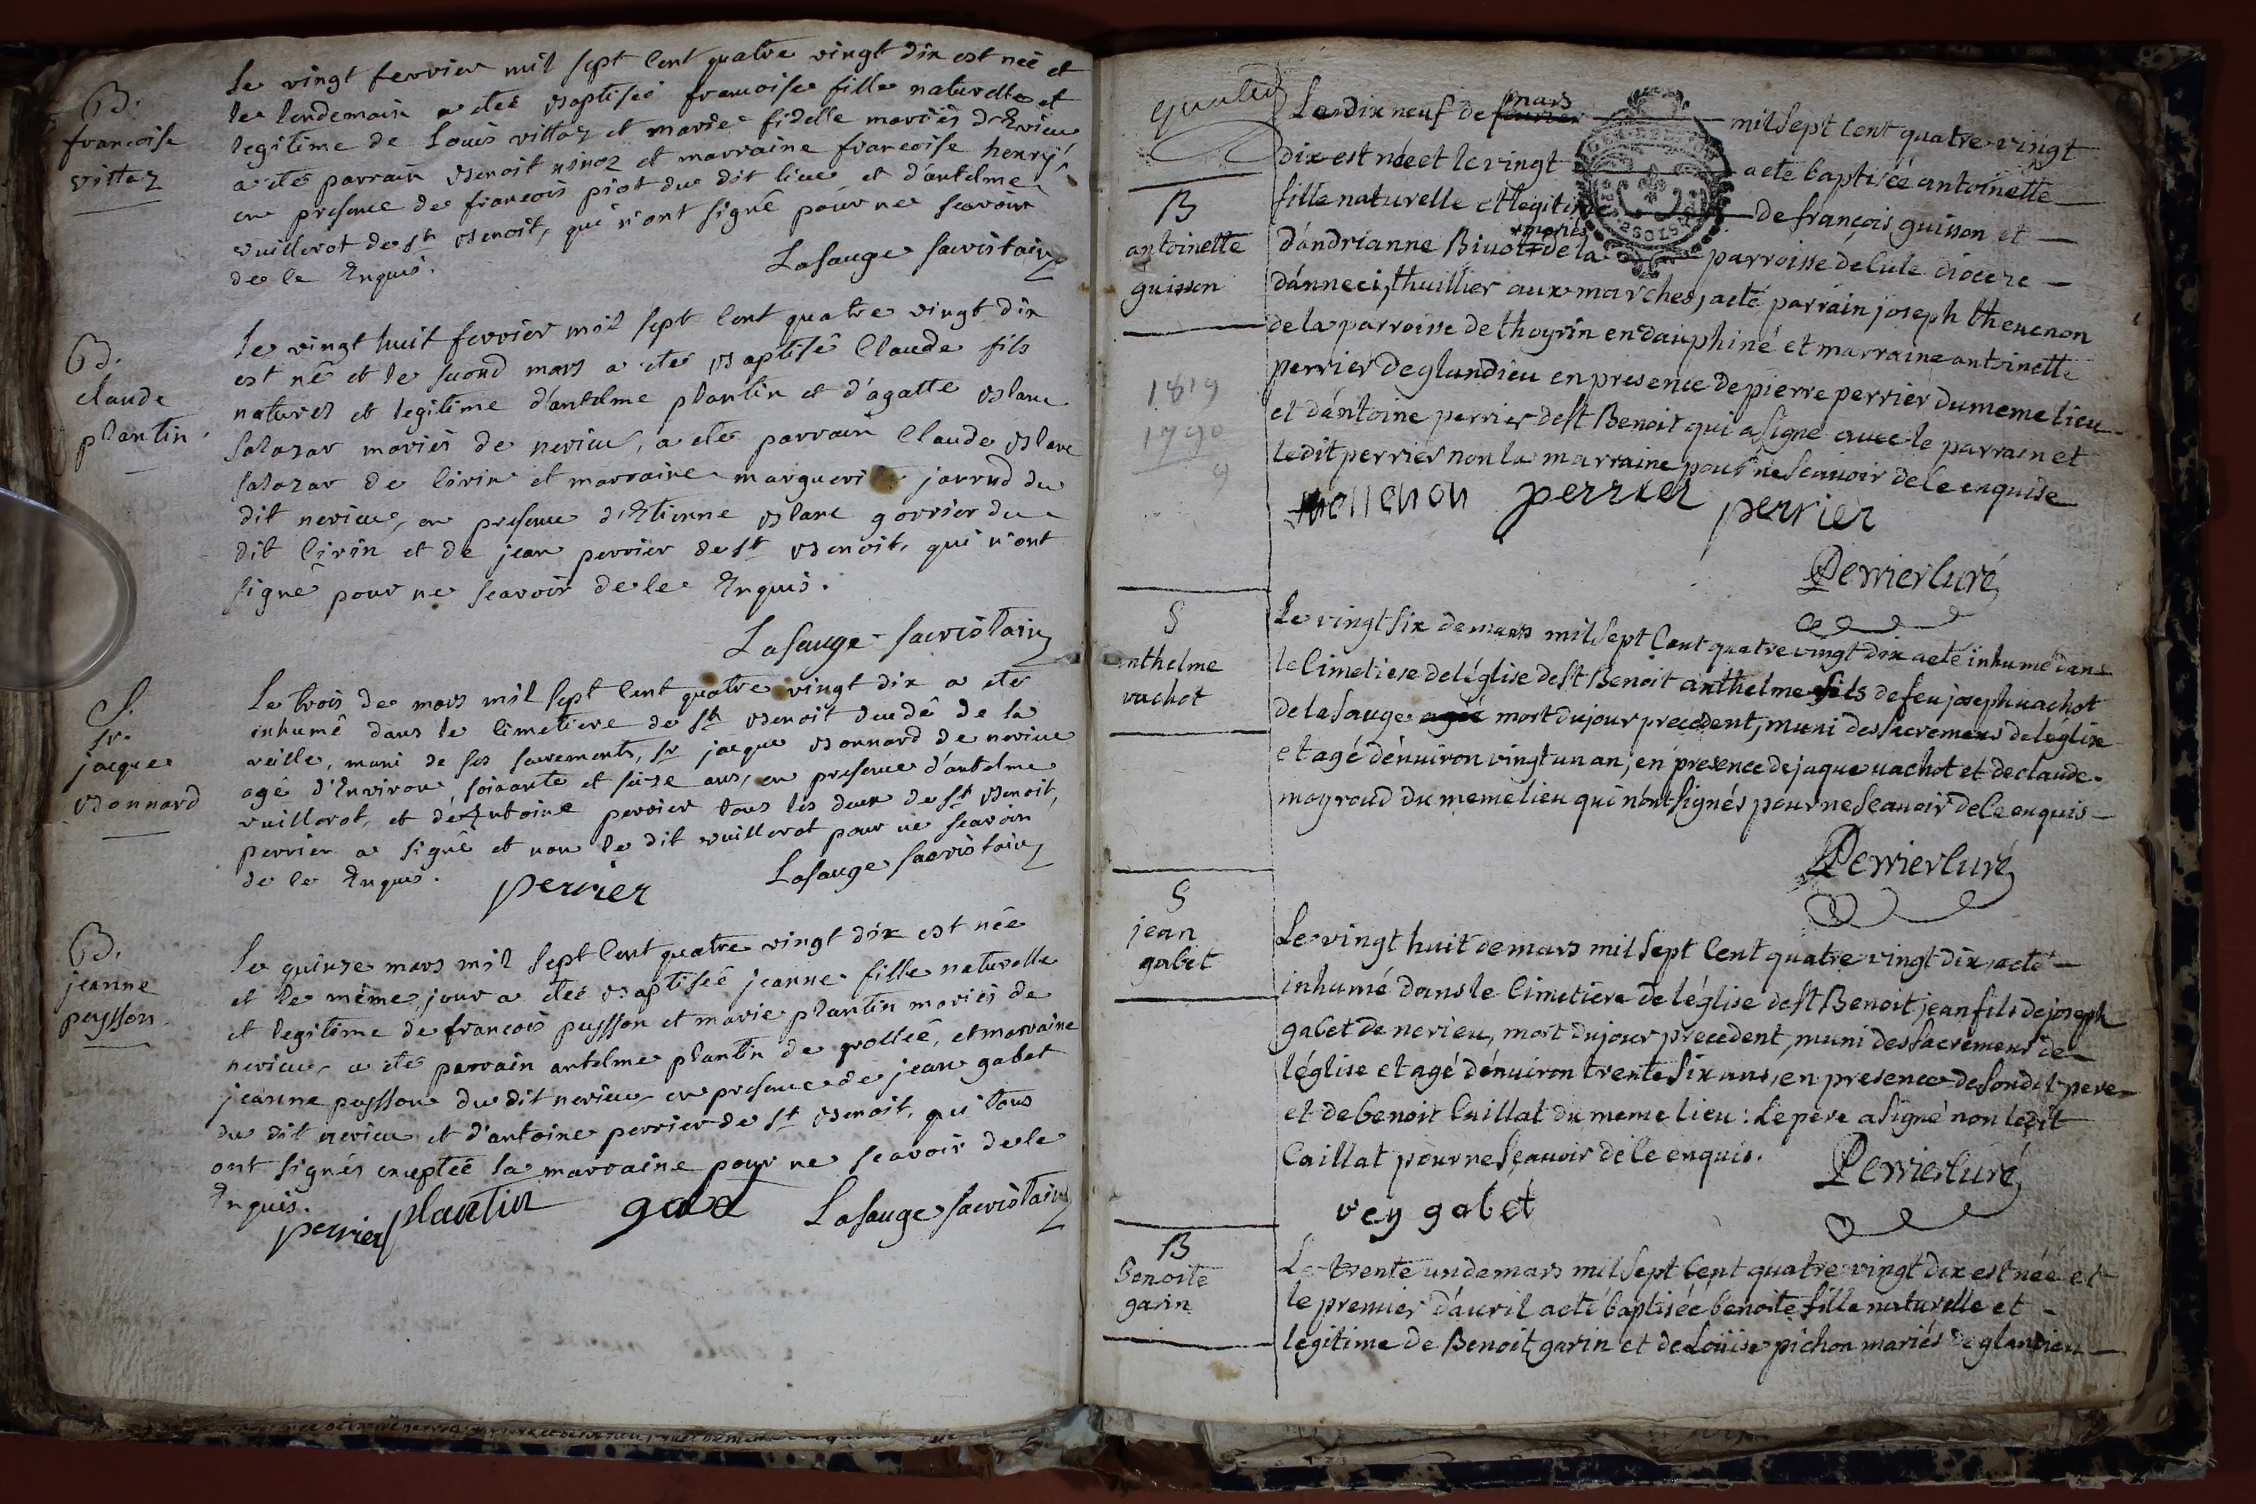 B.
francoise
vittoz
Le vingt fevrier mil sept Cent quatre vingt dix est née et
le lendemain a eteé Baptiseé francoise fille naturelle et
legitime de Louis vittoz et marie fidelle mariés d'Evieu
a eté parrain Benoit et marraine francoise henry,
en presence de francois piot du dit lieu et d'antelme
vuillerot de st Benoit, qui n'ont signé pour ne scavoir
de ce Enquis.
Lasauge sacristain
B.
claude
plantin
Le vingt huit fevrier mil sept Cent quatre vingt dix
est né et le second mars a eté Baptisé Claude fils
naturel et legitime d'antelme plantin et d'agatte Blanc
Salazar mariés de nerieu, a eté parrain Claude Blanc
Salazar de Cirin et marraine margueri jarrud du
dit nerieu, en presence d'Etienne Blanc gorrier du
dit Cirin et de jean perrier de st Benoit, qui n'ont
signé pour ne scavoir de ce Enquis.
Lasauge sacristain
S.
sr.
jacque
Bonnard
Le trois de mars mil sept Cent quatre vingt dix a eté
inhumé dans le Cimetiere de st Benoit decedé de la
veille, muni de ses sacrements, sr jacque Bonnard de nerieu
agé d'Environ soixante et seize ans, en presence d'antelme
vuillerot, et d'Antoine perrier tous les deux de st Benoit,
perrier a signé et non le dit vuillerot pour ne scavoir
de ce Enquis.
perrier Lasauge sacristain
B.
jeanne
peysson
Le quinze mars mil sept Cent quatre vingt dix est née
et le même jour a eteé Baptiseé jeanne fille naturelle
et legitime de francois peysson et marie plantin mariés de
nerieu, a eté parrain antelme plantin de groslée, et marraine
jeanne peysson du dit nerieu en presence de jean gabet
du dit nerieu et d'antoine perrier de st Benoit, qui tous
ont signés exepteé la marraine pour ne scavoir de ce
Enquis.
perrier plantin gabet Lasauge sacristain
B
antoinette
guisson
1819
1790
9
Le dix neuf de mars mil sept Cent quatre vingt
dix est née et le vingt a eté baptisée antoinette
fille naturelle et legitime de françois guisson et
d'andrianne mariés de la parroisse de Cule dioceze
d'anneci, thuillier aux marches, a eté parrain joseph thevenon
de la parroisse de thoyrin en dauphiné et marraine antoinette
perrier de glandieu en presence de pierre perrier du meme lieu
et d'antoine perrier de st Benoit qui a signé avec le parrain et
ledit perrier non la marraine pour ne scavoir de ce enquise
perrier perrier
Perrier Curé
S
nthelme
vachot
Le vingt six de mars mil sept Cent quatre vingt dix a eté inhumé dans
le Cimetiere de l'église de st Benoit anthelme fils de feu joseph vachot
de la sauge agé mort du jour precedent, muni des sacremens de l'église
et agé d'environ vingt un an, en presence de jaque vachot et de claude
moyroud du meme lieu qui n'ont signés pour ne scavoir de ce enquis
Perrier Curé
S
jean
gabet
Le vingt huit de mars mil sept Cent quatre vingt dix a eté
inhumé dans le Cimetiere de l'église de st Benoit jean fils de joseph
gabet de nerieu, mort du jour precedent, muni des sacremens de
l'église et agé d'environ trente six ans, en presence de son dit pere
et de benoit Caillat du meme lieu: le pere a signé non ledit
Caillat pour ne scavoir de ce enquis.
Perrier Curé
vey gabet
B
Benoite
garin
Le trente un de mars mil sept Cent quatre vingt dix est née et
le premier d'avril a eté baptisée benoite fille naturelle et
legitime de Benoit garin et de Loüise pichon mariés de glandieu